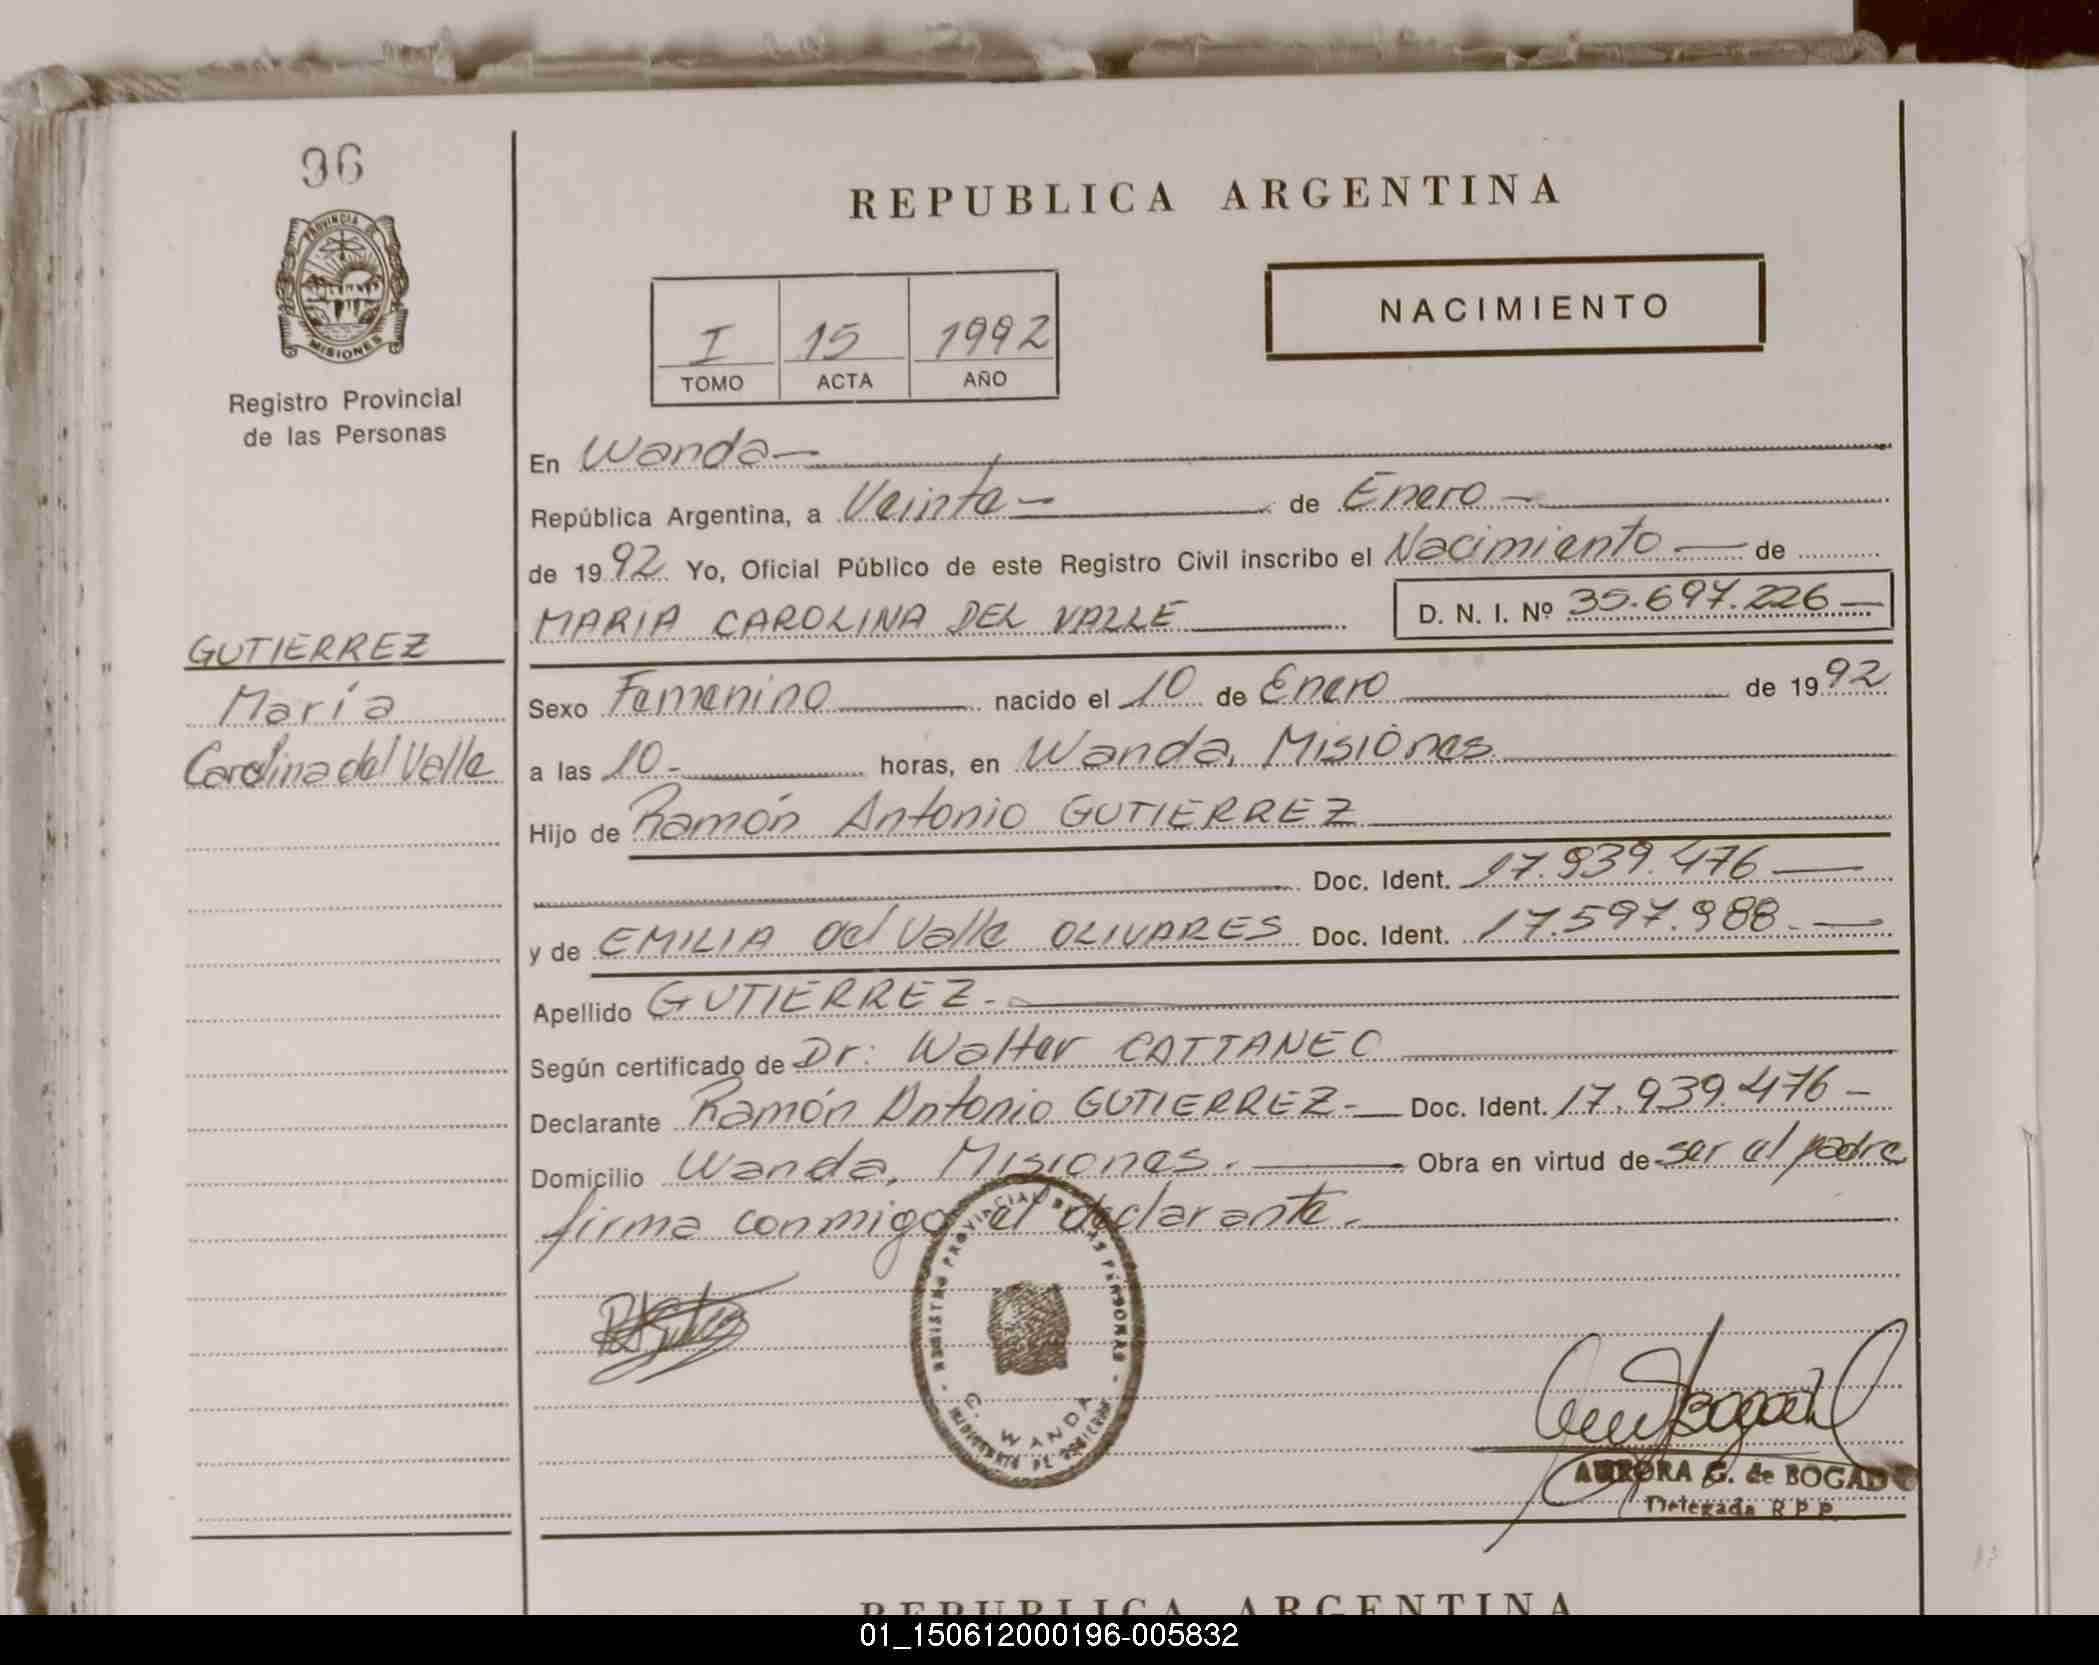 96
PROVINCIA DE
MISIONES
Registro Provincial
de las Personas
GUTIERREZ
María
Carolina del Valle
REPUBLICA ARGENTINA
NACIMIENTO
I 15 1992
TOMO ACTA AÑO
En Wanda—
República Argentina, a Veinte — de Enero —
de 1992 Yo, Oficial Público de este Registro Civil inscribo el Nacimiento — de
MARIA CAROLINA DEL VALLE D. N. I. Nº 35.697.226 —
Sexo Femenino nacido el 10 de Enero de 1992
a las 10- horas, en Wanda, Misiones
Hijo de Ramón Antonio GUTIERREZ
Doc. Ident. 17.939.476 —
y de EMILIA del Valle OLIVARES Doc. Ident. 17.597.988.—
Apellido GUTIERREZ.-
Según certificado de Dr: Walter CATTANEO
Declarante Ramón Antonio GUTIERREZ- Doc. Ident. 17.939.476 —
Domicilio Wanda, Misiones. Obra en virtud de ser el padre
firma conmigo el declarante.
REGISTRO PROVINCIAL DE LAS PERSONAS
WANDA
MINISTERIO DE GOBIERNO
AURORA G. de BOGADO
Delegada R P P
REPUBLICA ARGENTINA
01_150612000196-005832